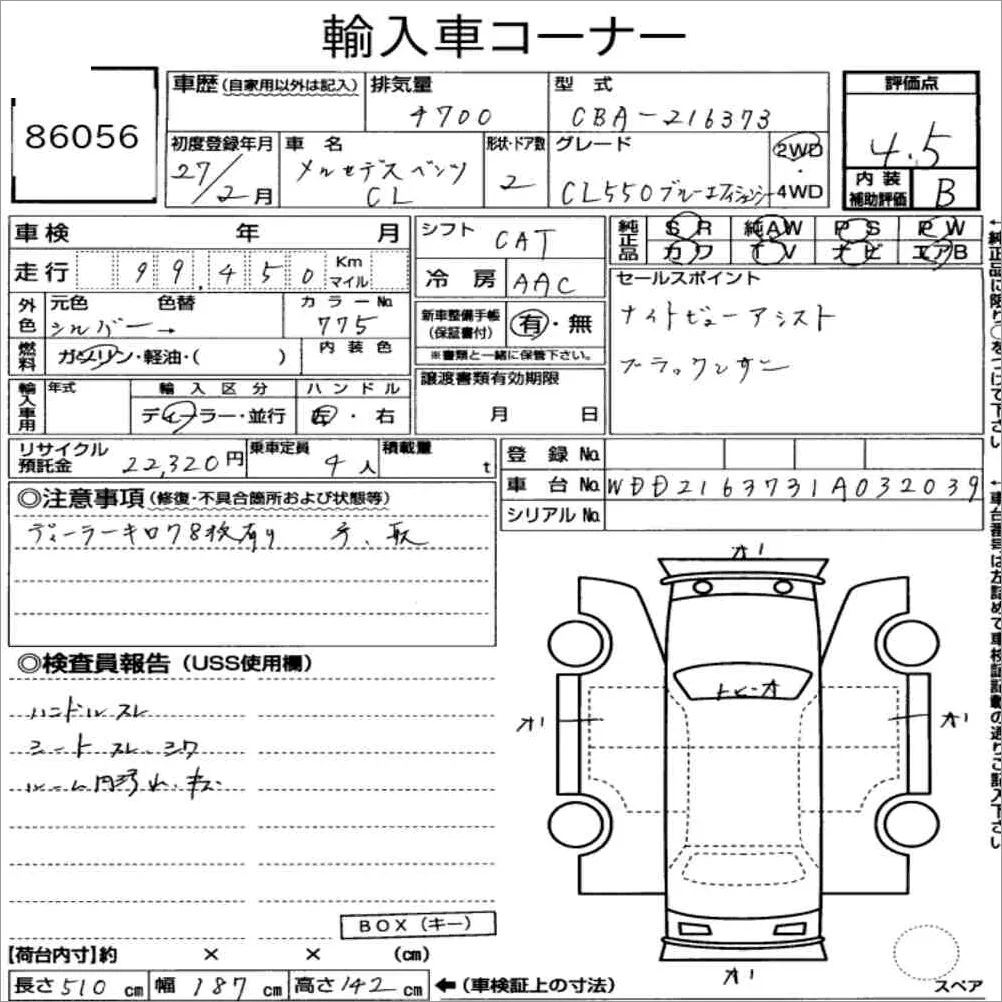 輸入車コーナー
86056
車歴(自家用以外は記入) 排気量 4700 型式 CBA-216373 評価点 4.5
初度登録年月 27/2月 車名 メルセデスベンツ CL 形状・ドア数 2 グレード CL550ブルーエフィシェンシー 2WD・4WD
内装補助評価 B
車検 年 月 シフト CAT 純正品 SR 純AW PS PW
カワ TV ナビ エアB
走行 99,450 Km マイル 冷房 AAC セールスポイント
外色 元色 シルバー→ 色替 カラーNo 775 新車整備手帳(保証書付) 有・無 ナイトビューアシスト
燃料 ガソリン・軽油・( ) 内装色 ※書類と一緒に保管下さい。 ブラックレザー
輸入車用 年式 輸入区分 ハンドル 譲渡書類有効期限
ディーラー・並行 左・右 月 日
リサイクル預託金 22,320円 乗車定員 4人 積載量 t 登録No.
車台No. WDD2163731A032039
シリアルNo.
◎注意事項(修復・不具合箇所および状態等)
ディーラーキロ78枚有り 手、取
◎検査員報告(USS使用欄)
ハンドルスレ
シートスレ、シワ
ルーム内汚れ、キズ
オ1
トヒーオ
オ1 オ1
オ1
BOX(キー)
【荷台内寸】約 × × (cm)
長さ510cm 幅187cm 高さ142cm ←(車検証上の寸法) スペア
←純正品に限り○をつけて下さい
←車台番号は左詰めで車検証記載の通りご記入下さい